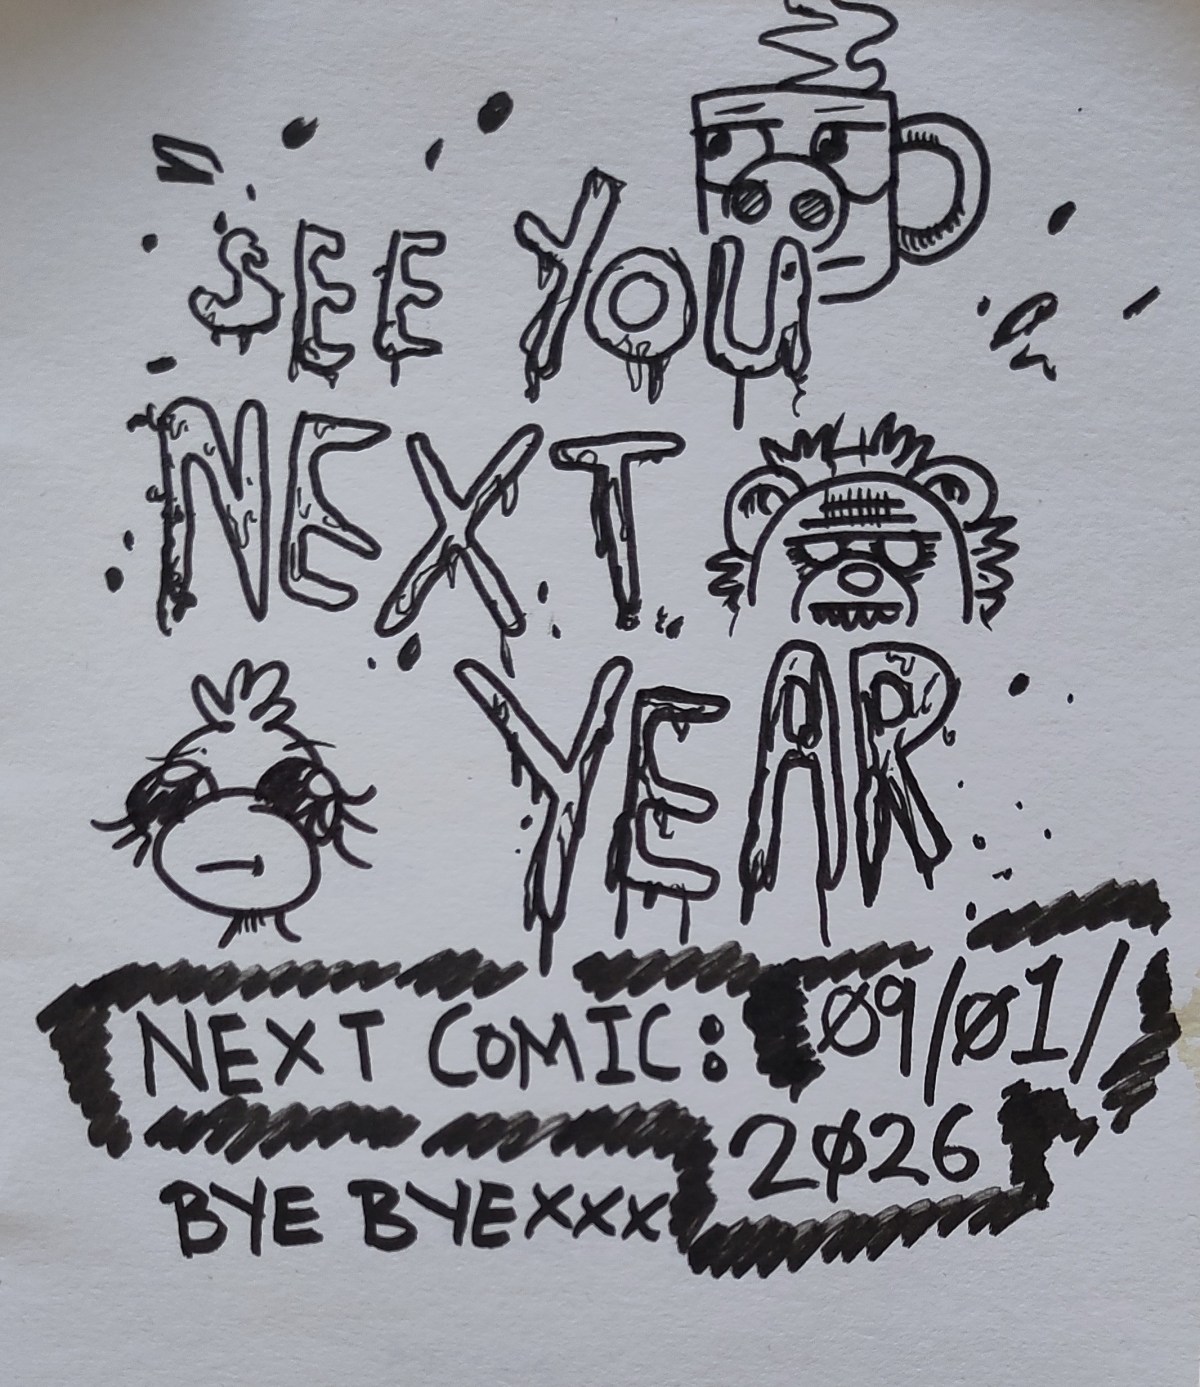 SEE YOU
NEXT
YEAR
NEXT COMIC: 09/01/
2026
BYE BYExxx